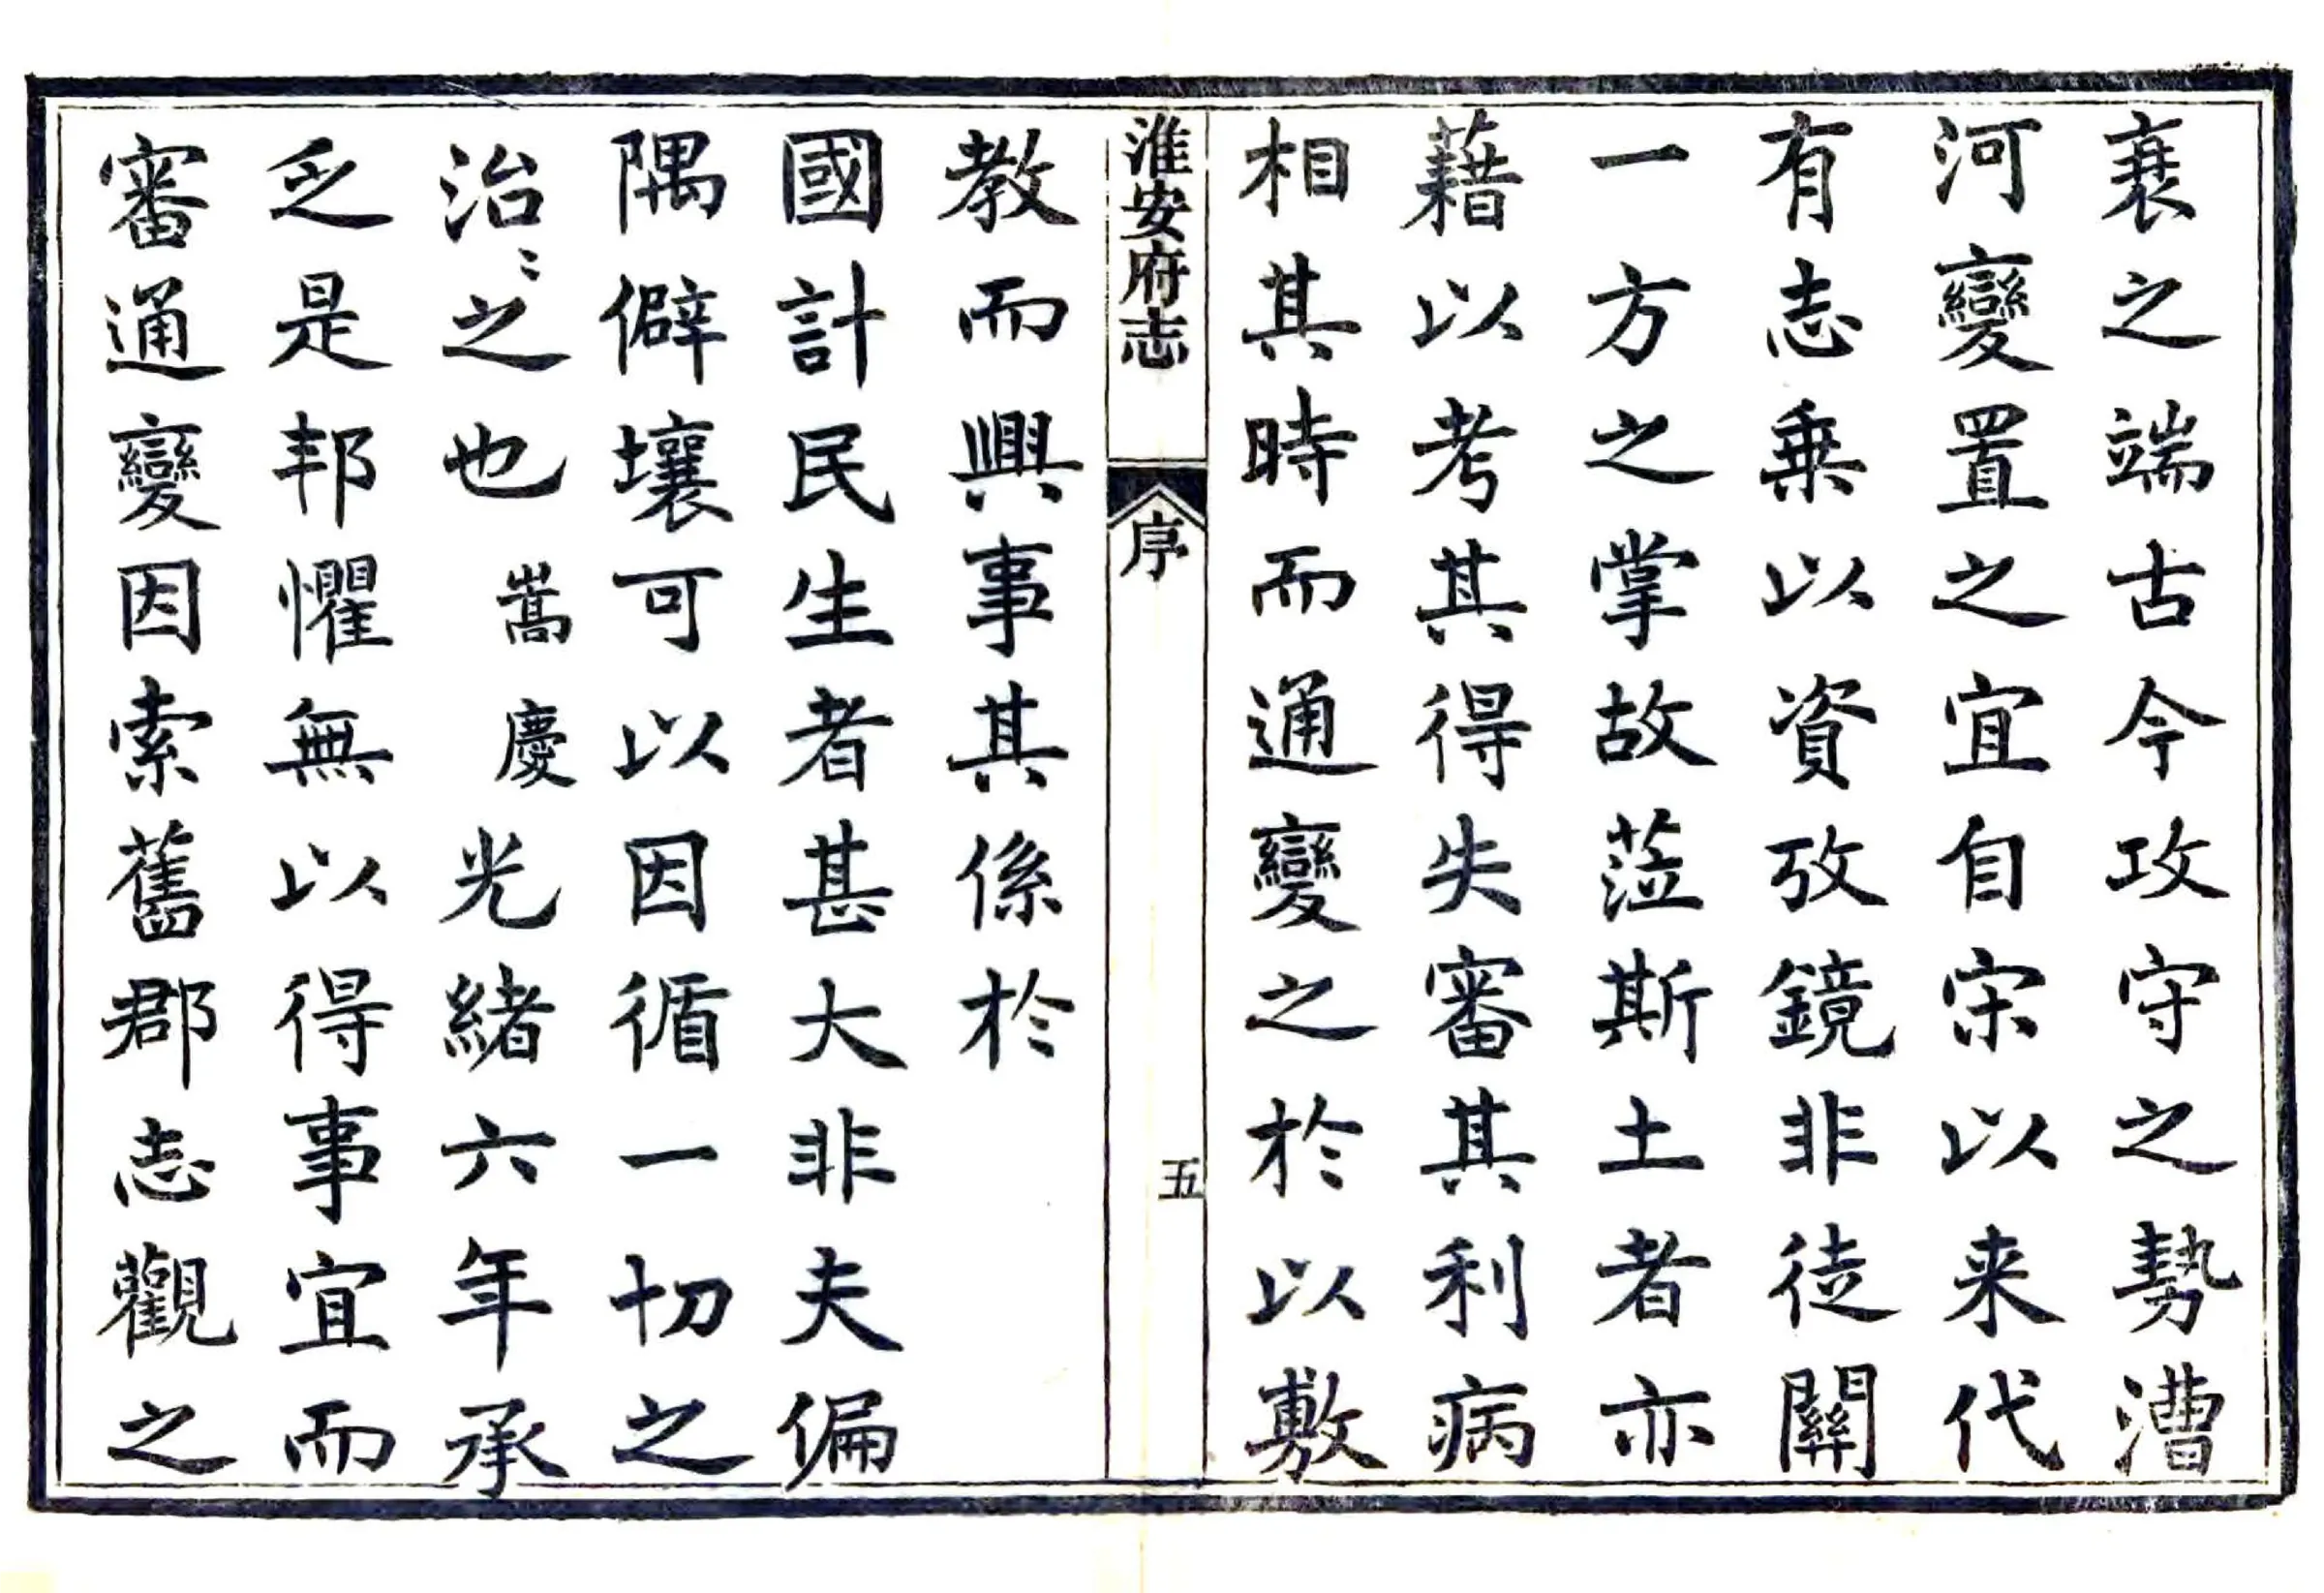 衰之端古今攻守之勢漕
河變置之宜自宋以来代
有志乗以資攷鏡非徒關
一方之掌故蒞斯土者亦
藉以考其得失審其利病
相其時而通變之於以敷
淮安府志
序
五
教而興事其係於
國計民生者甚大非夫偏
隅僻壤可以因循一切之
治〻之也嵩慶光緒六年承
乏是邦懼無以得事宜而
審通變因索舊郡志觀之